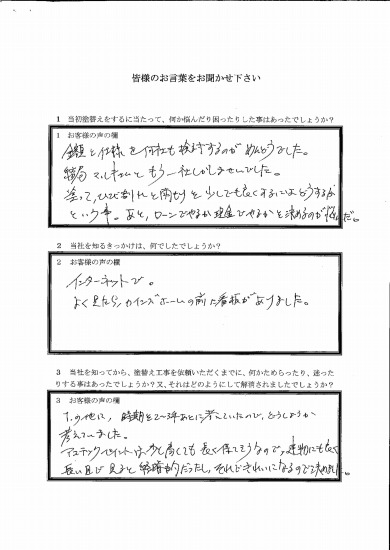 皆様のお言葉をお聞かせ下さい
1 当初塗替えをするに当たって、何か悩んだり困ったりした事はあったでしょうか?
1 お客様の声の欄
金額と仕様を何社も検討するのが めんどうでした。
結局 マルキルと もう一社しかしませんでした。
塗って、ひび割れと雨切りを少しでも良くするにはどうするか
という事。あと、ローンでやるか現金でやるかを決めるのが悩んだ。
2 当社を知るきっかけは、何でしたでしょうか?
2 お客様の声の欄
インターネットで。
よく見たら、カインズホームの前に看板がありました。
3 当社を知ってから、塗替え工事を依頼いただくまでに、何かためらったり、迷った
りする事はあったでしょうか?又、それはどのようにして解消されましたでしょうか?
3 お客様の声の欄
1.の他に、時期を2〜3年あとに考えていたので、どうしようか
考えていました。
アステックペイントは、少し高くても長く保てそうなので、建物にも良く
長い目で見ると経済的だったし、それできれいになるので決めました。